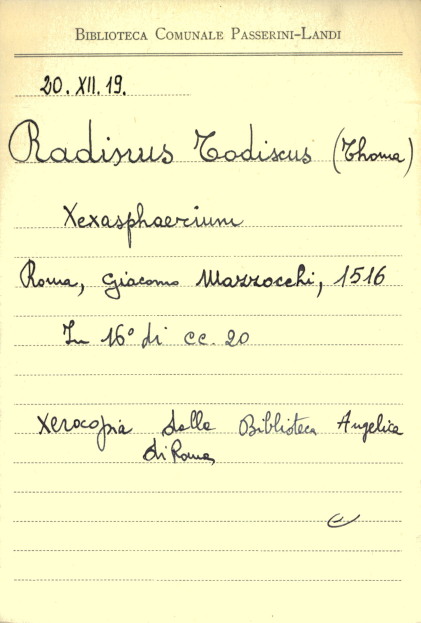 BIBLIOTECA COMUNALE PASSERINI-LANDI
20. XII. 19.
Radinus Todiscus (Thoma)
Xexasphaerium
Roma, Giacomo Mazzocchi, 1516
In 16° di cc. 20
Xerocopia della Biblioteca Angelica
di Roma